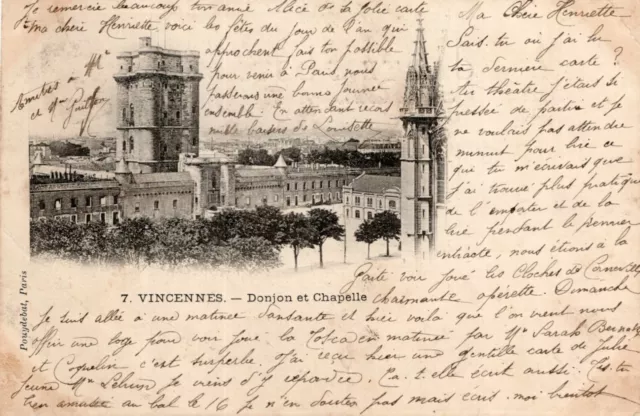 Je remercie beaucoup ton amie Alice de la jolie carte
Ma chère Henriette voici les fêtes du jour de l'an qui
approchent fais ton possible
pour venir à Paris, nous
passerons une bonne journée
ensemble. En attendant reçois
mille baisers de Louisette
Amitiés à Mr
et Mme
Ma Chère Henriette
Sais-tu où j'ai lu
ta dernière carte ?
Au théâtre j'étais si
pressée de partir et je
ne voulais pas attendre
minuit pour lire ce
que tu m'écrivais que
j'ai trouvé plus pratique
de l'emporter et de la
lire pendant le premier
entracte, nous étions à la
Gaité voir jouer les Cloches de Corneville
charmante opérette. Dimanche
7. VINCENNES. — Donjon et Chapelle
Pouydebat, Paris
Je suis allée à une matinée dansante et voilà que l'on vient nous
offrir une loge pour voir jouer la Tosca en matinée par Me Sarah Bernh
et Coquelin c'est superbe. J'ai reçu hier une gentille carte de Julie
jeune Me je viens d'y répondre. t-elle écrit aussi. Es-tu
bien amusée au bal le 16 je n'en doute pas mais écris-moi bientôt